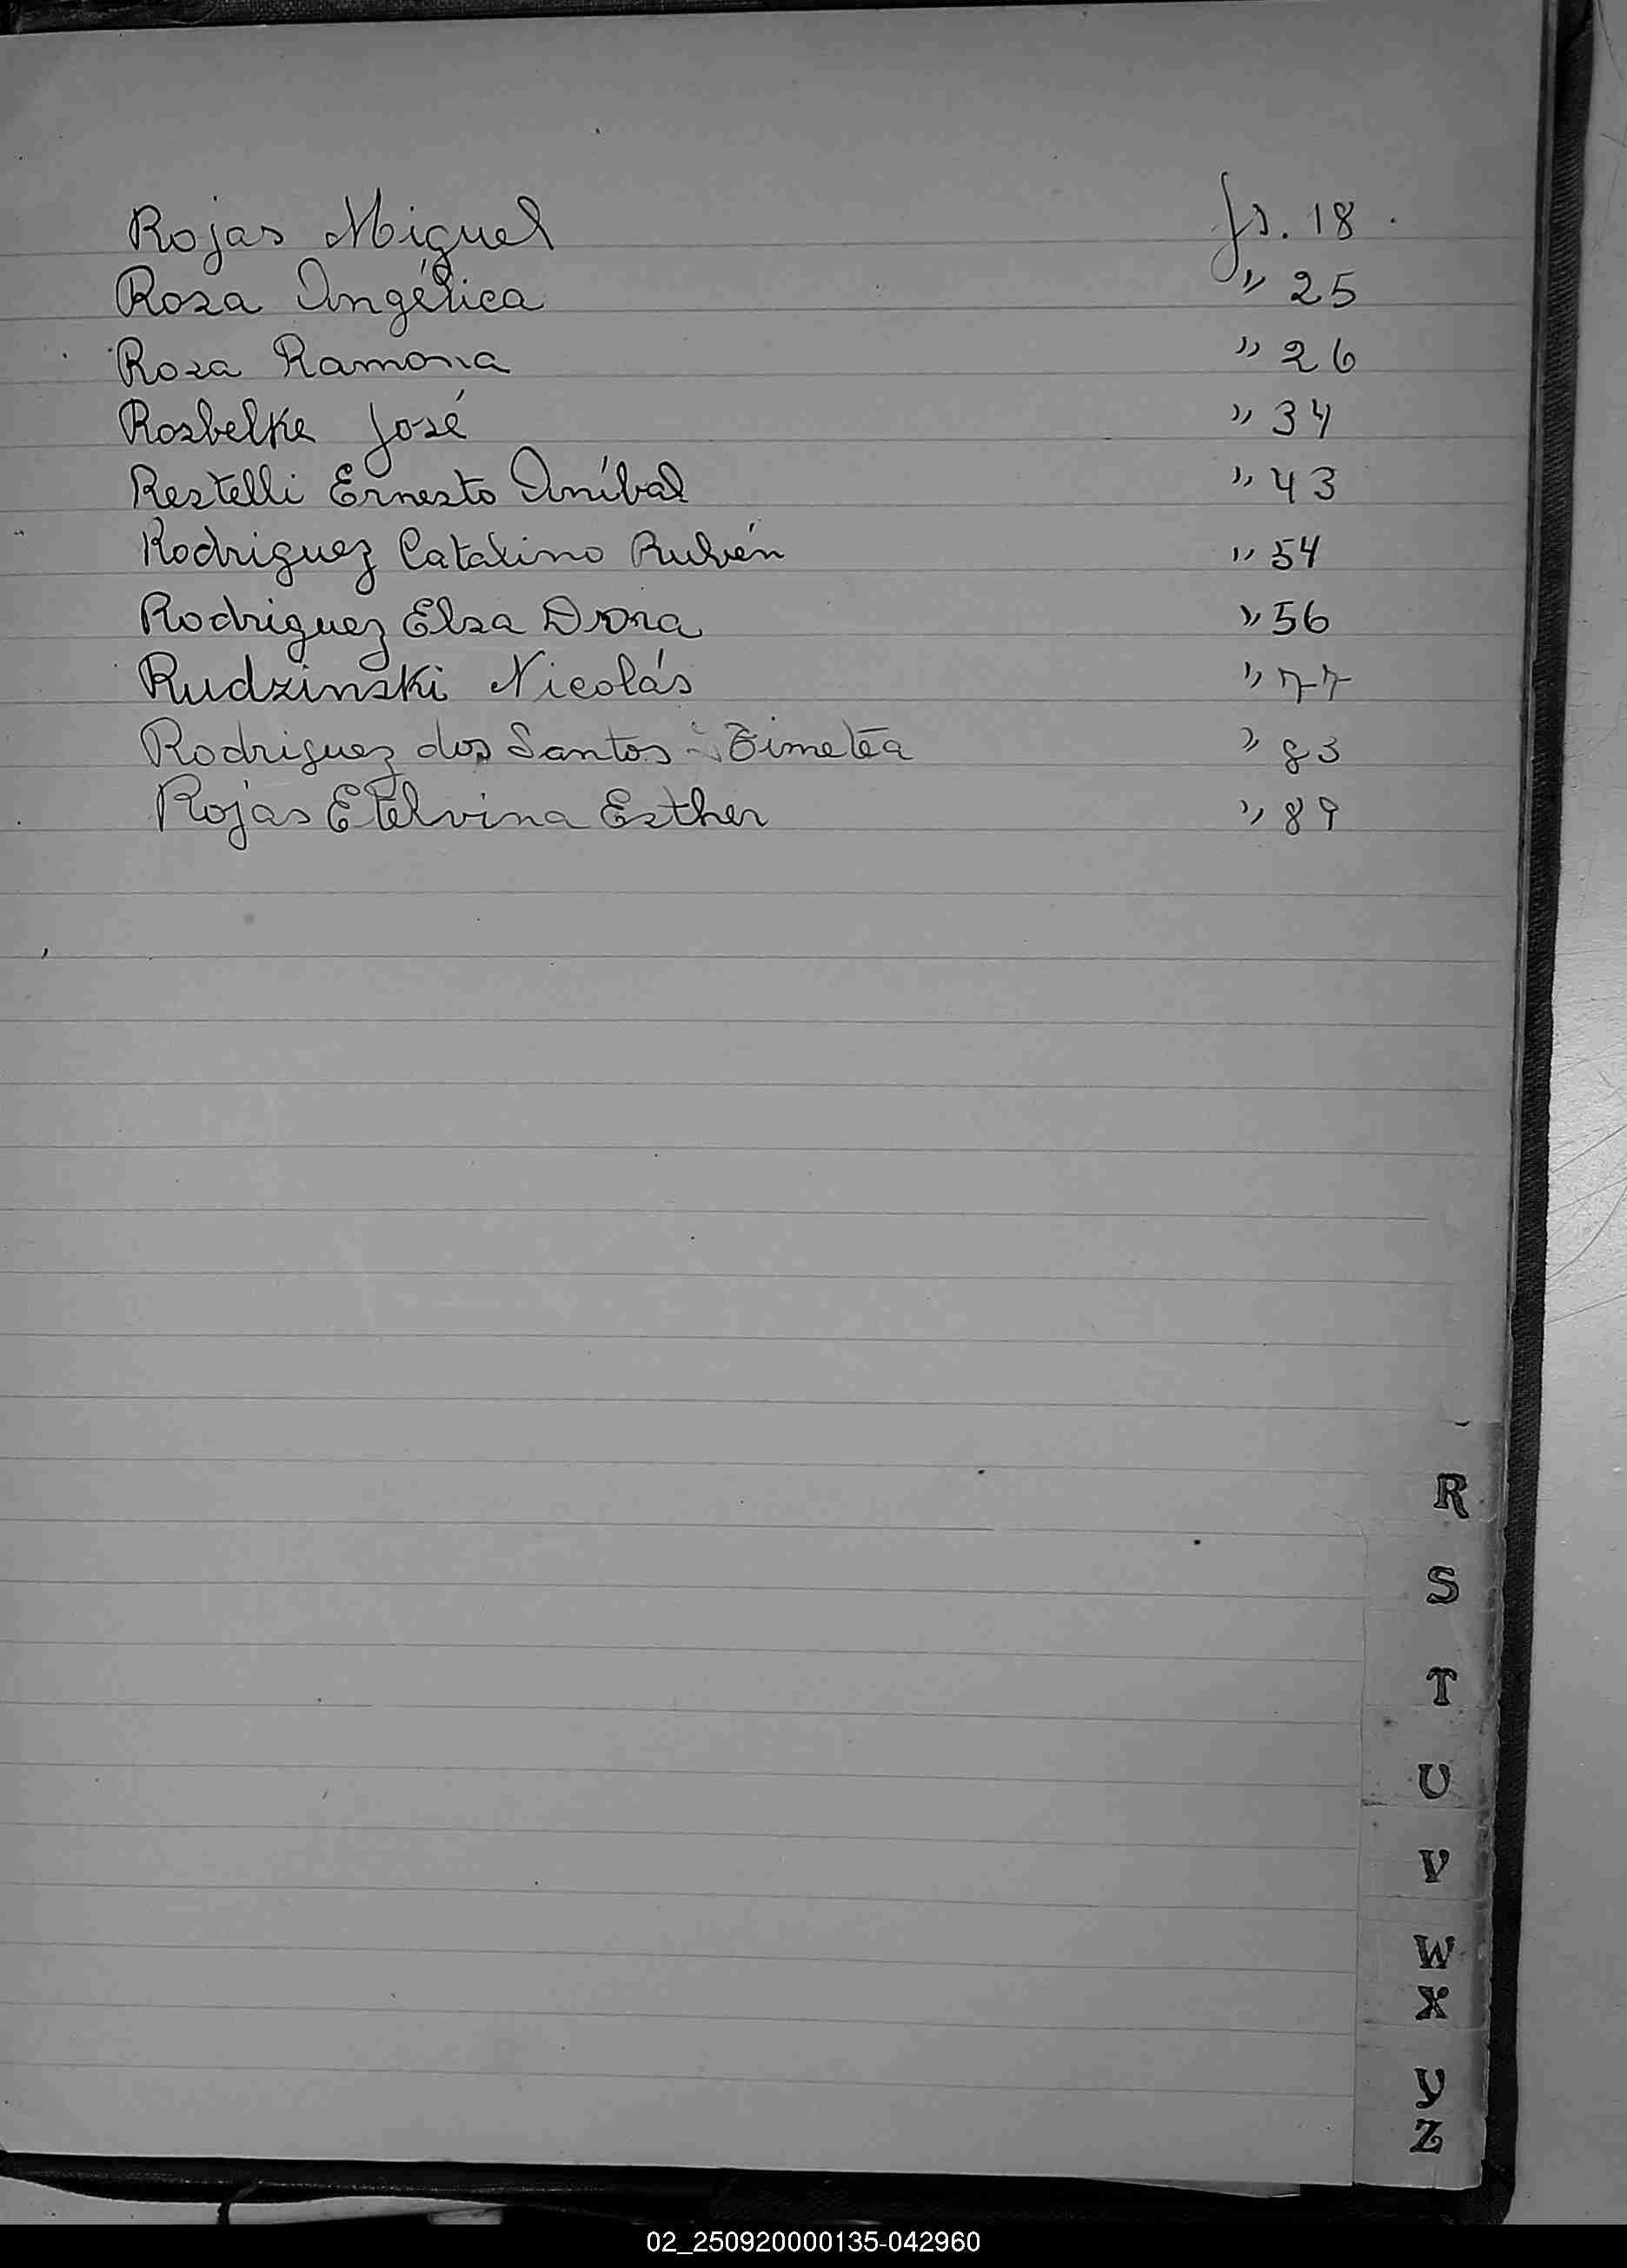 Rojas Miguel fs. 18
Rosa Angélica " 25
Rosa Ramona " 26
Rosbelke José " 34
Restelli Ernesto Aníbal " 43
Rodriguez Catalino Rubén " 54
Rodriguez Elsa Dora " 56
Rudzinski Nicolás " 77
Rodriguez dos Santos - " 83
Rojas Etelvina Esther " 89
R
S
T
U
V
W
X
Y
Z
02_250920000135-042960